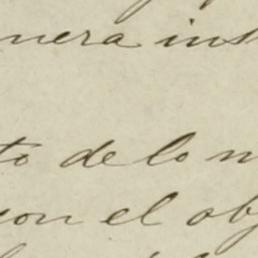 nera ins
to de lo m
con el obj